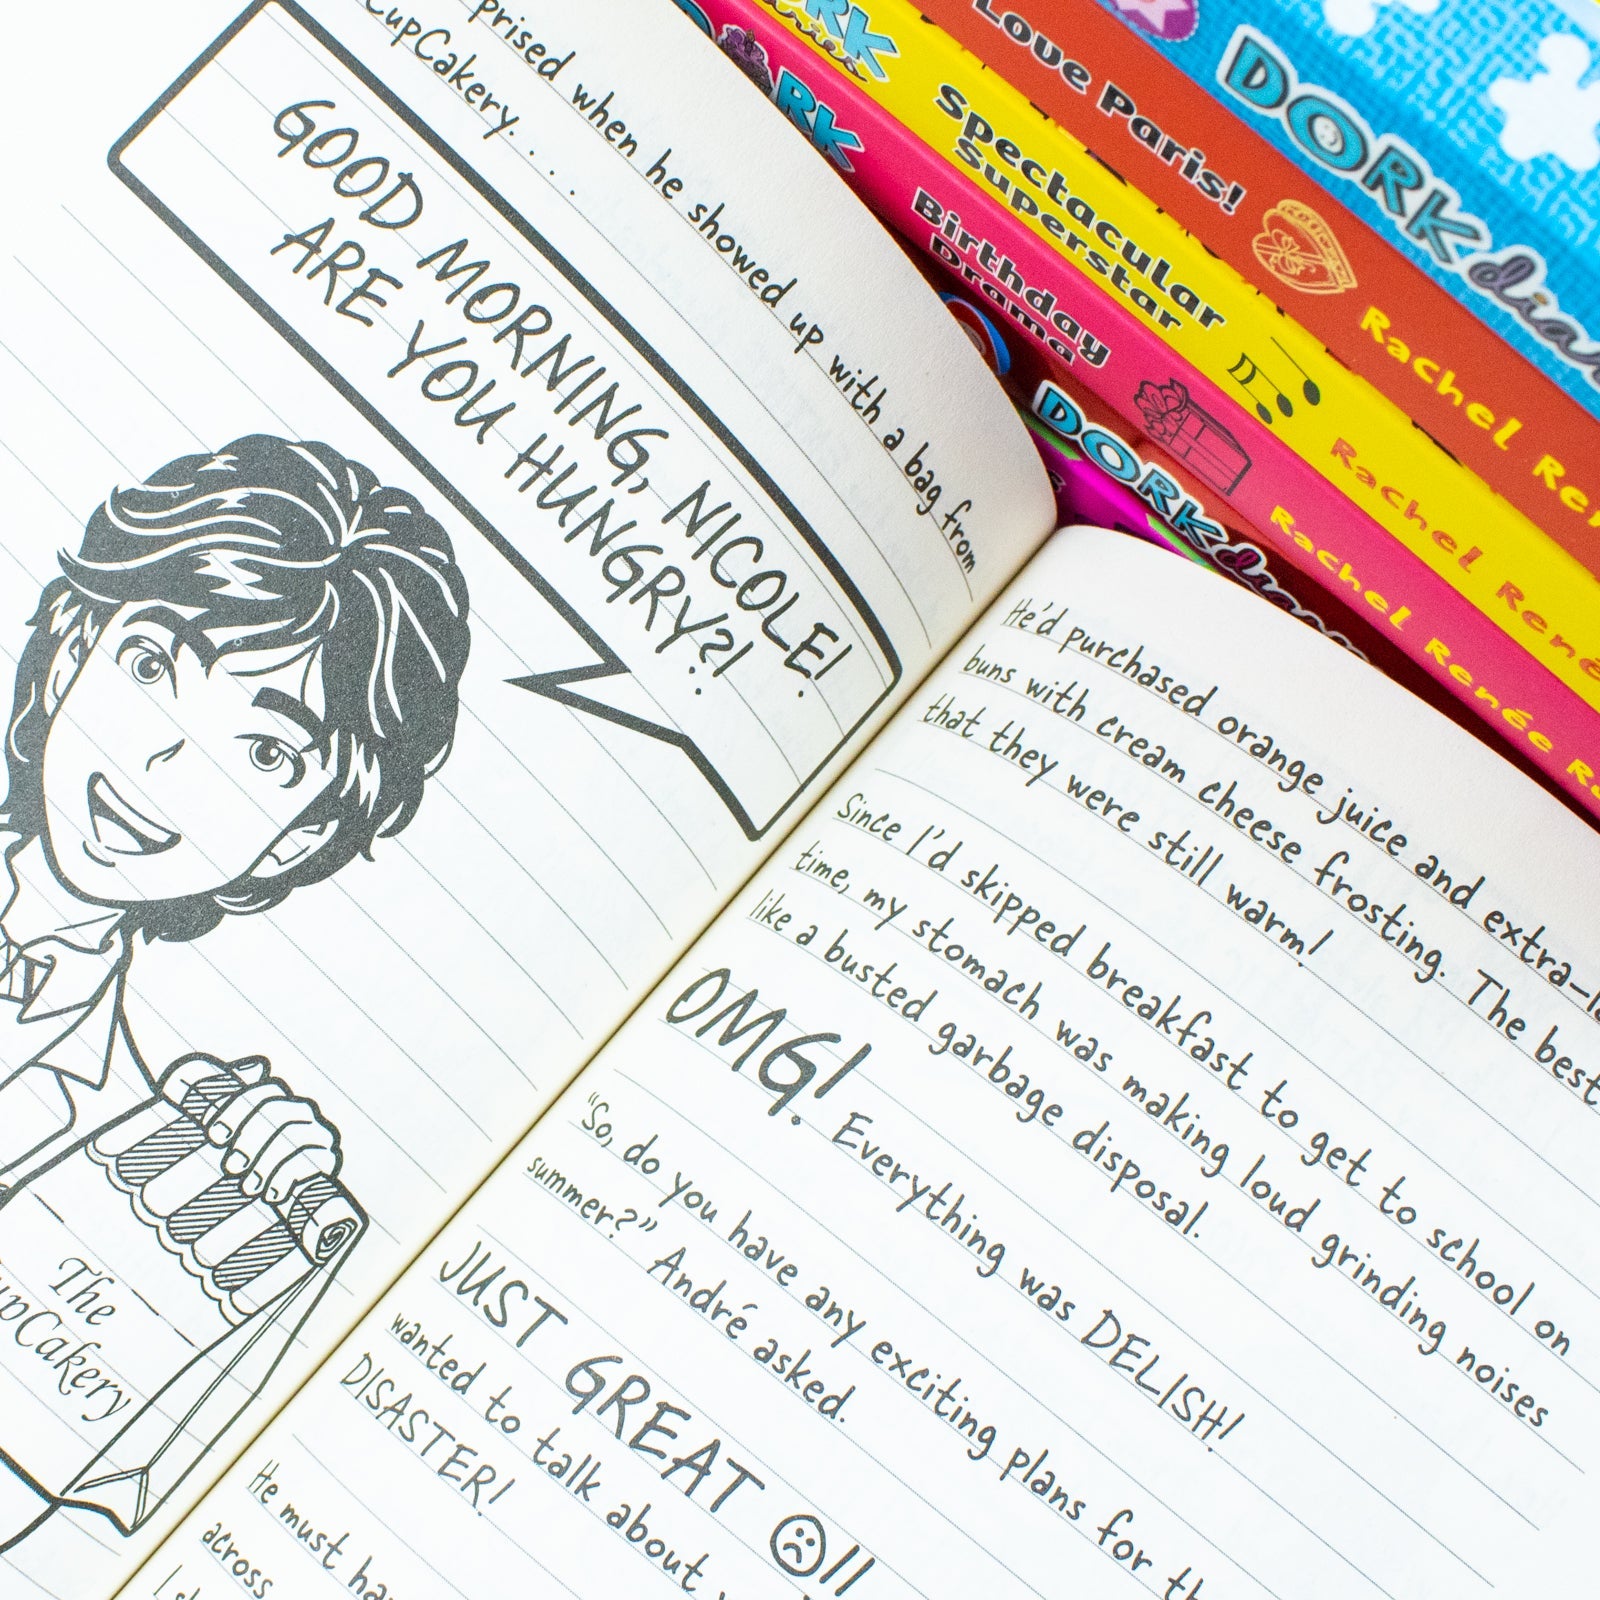 prised when he showed up with a bag from
CupCakery. . . .
GOOD MORNING, NICOLE!
ARE YOU HUNGRY?!
The
upCakery
He'd purchased orange juice and extra-la
buns with cream cheese frosting. The best
that they were still warm!
Since I'd skipped breakfast to get to school on
time, my stomach was making loud grinding noises
like a busted garbage disposal.
OMG! Everything was DELISH!
"So, do you have any exciting plans for th
summer?" André asked.
JUST GREAT ☹!!
wanted to talk about
DISASTER!
He must hav
across
I sh
DORK diar
Love Paris! Rachel Ren
ORK diaries Spectacular Superstar Rachel René
ORK Birthday Drama Rachel Renée Ru
DORK